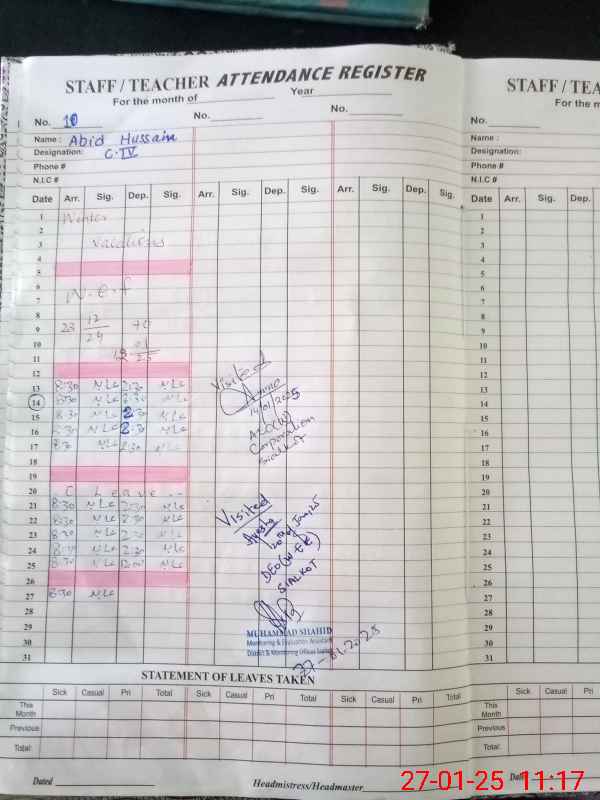 STAFF / TEACHER ATTENDANCE REGISTER
For the month of Year
No. 10 No. No.
Name : Abid Hussain
Designation: C.IV
Phone #
N.I.C #
Date Arr. Sig. Dep. Sig. Arr. Sig. Dep. Sig. Arr. Sig. Dep. Sig.
1 Winter
2
3 Vacations
4
5
6 W.e.f
7
8
9 23 12/24 to
10
11
12
13 8:30 2:30
14 8:30 2:30
15 8:30 2:30
16 8:30 2:30
17 8:30 2:30
18
19
20 C Leave
21 8:30 2:30
22 8:30 2:30
23 8:30 2:30
24 8:30 2:30
25 8:30
26
27 8:30
28
29
30
31
Visited
14/01/2025
AEO(W)
Corporation
Sialkot
Visited
Ayesha
20th of Jan, 25
DEO(W-EE)
SIALKOT
MUHAMMAD SHAHID
Monitoring & Evaluation Assistant
District Monitoring Officer Sialkot
27-01-2025
STATEMENT OF LEAVES TAKEN
Sick Casual Pri Total Sick Casual Pri Total Sick Casual Pri Total
This
Month
Previous
Total:
Dated Headmistress/Headmaster
STAFF / T
For the m
No.
Name :
Designation:
Phone #
N.I.C #
Date Arr. Sig. Dep.
1
2
3
4
5
6
7
8
9
10
11
12
13
14
15
16
17
18
19
20
21
22
23
24
25
26
27
28
29
30
31
Sick Casual Pri
This
Month
Previous
Total:
27-01-25 11:17